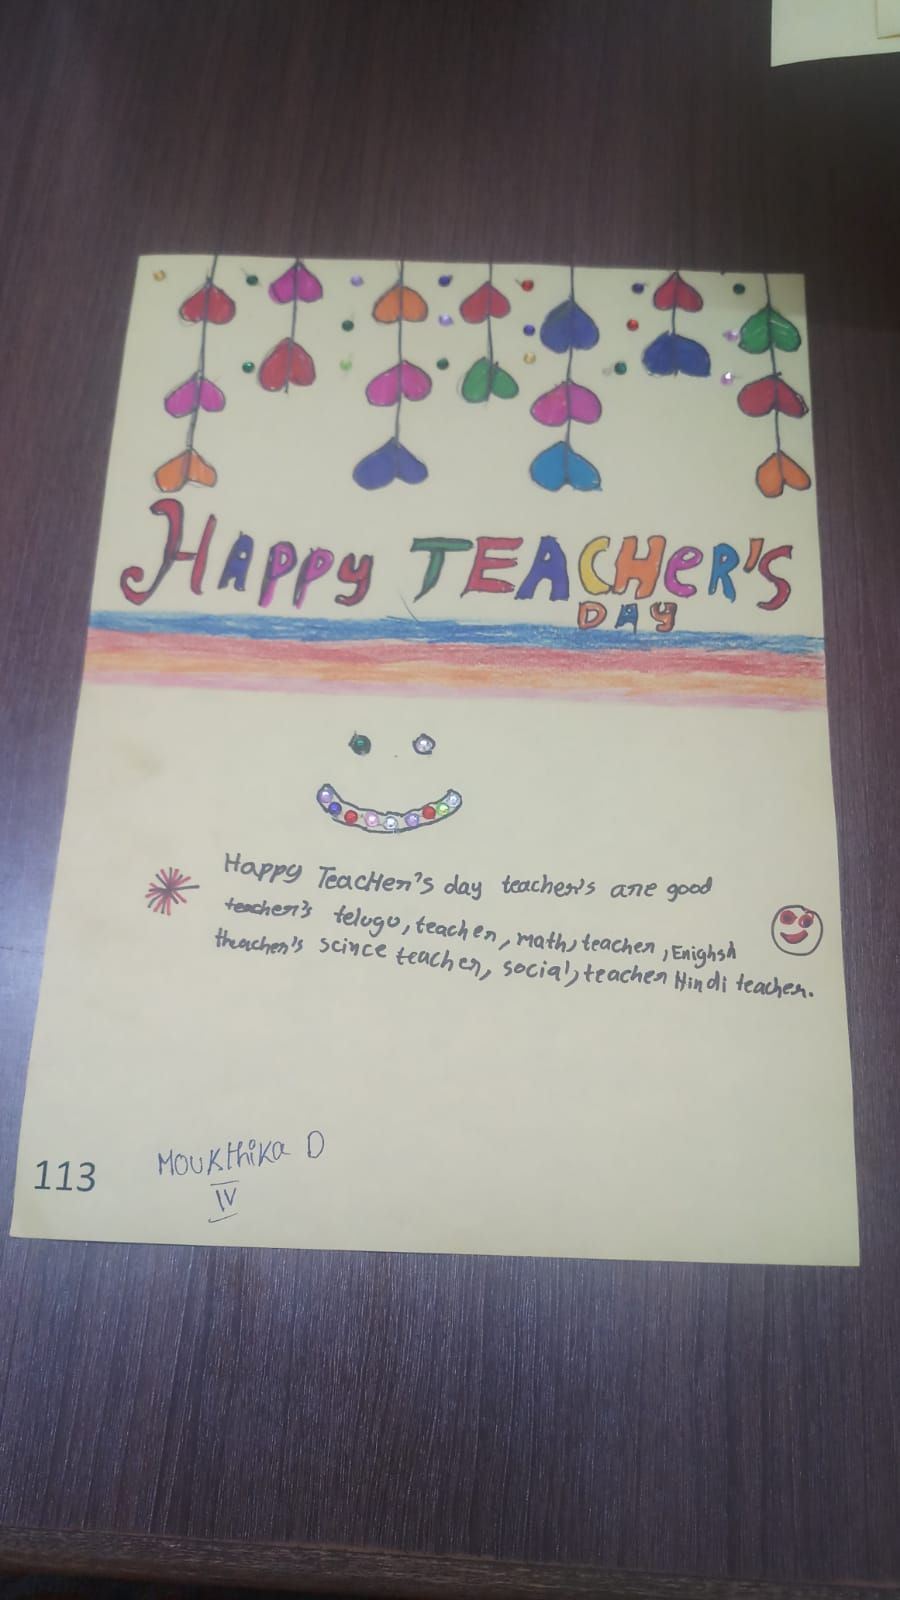 HAPPY TEACHER'S
DAY
Happy TeacHer's day teacher's are good
teacher's telugu, teacher, math, teacher, Enighsh
threacher's scince teacher, social, teacher Hindi teacher.
MOUKthiKa D
IV
113